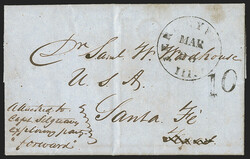 MAR
Ill.
10
Dr. Saml W. Woodhouse
U.S.A.
Santa Fé
Attached to
Capt Sitgreaves
Exploring party
"forward"